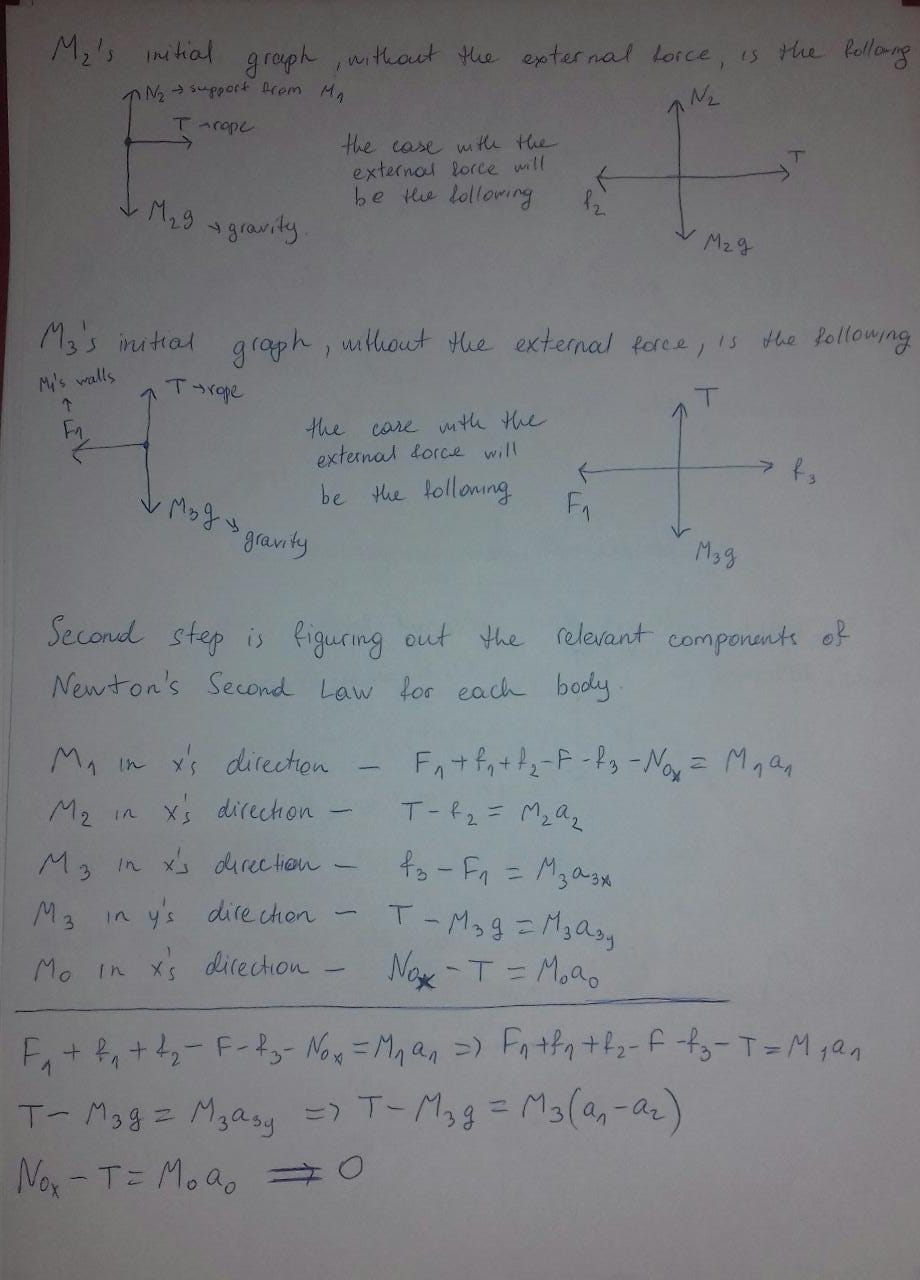 M₂'s initial graph, without the external force, is the following
N₂ → support from M₁
T → rope
M₂g → gravity.
the case with the
external force will
be the following
N₂
T
f₂
M₂g
M₃'s initial graph, without the external force, is the following
M₁'s walls
↑
F₁
T → rope
M₃g ↘ gravity
the case with the
external force will
be the following
T
f₃
F₁
M₃g
Second step is figuring out the relevant components of
Newton's Second Law for each body.
M₁ in x's direction – F₁ + f₁ + f₂ - F - f₃ - N₀ₓ = M₁a₁
M₂ in x's direction – T - f₂ = M₂a₂
M₃ in x's direction – f₃ - F₁ = M₃a₃ₓ
M₃ in y's direction – T - M₃g = M₃a₃y
M₀ in x's direction – N₀ₓ - T = M₀a₀
F₁ + f₁ + f₂ - F - f₃ - N₀ₓ = M₁a₁ => F₁ + f₁ + f₂ - F - f₃ - T = M₁a₁
T - M₃g = M₃a₃y => T - M₃g = M₃(a₁ - a₂)
N₀ₓ - T = M₀a₀ => 0